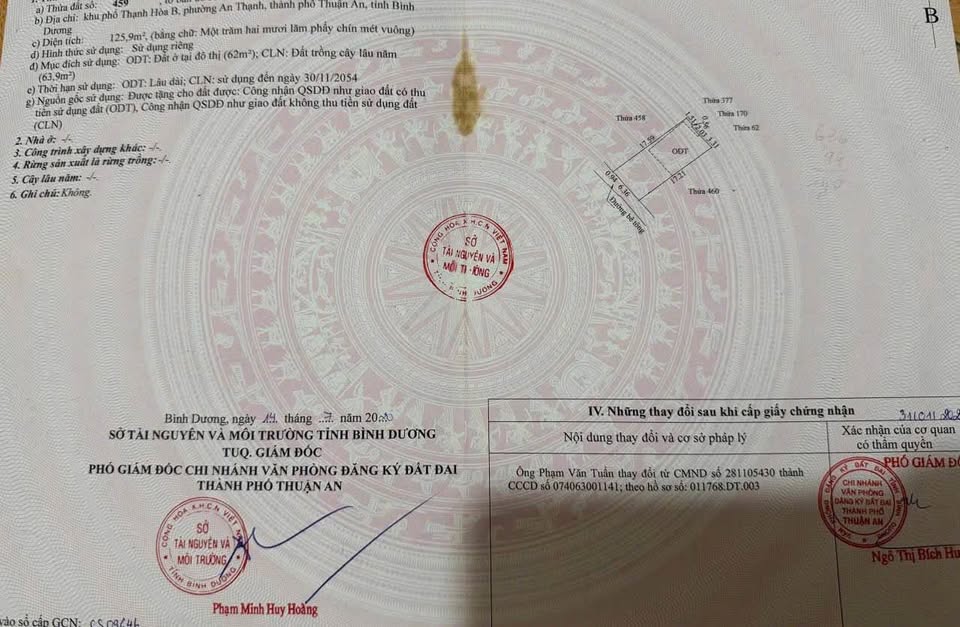 a) Thửa đất số: 459
b) Địa chỉ: khu phố Thạnh Hòa B, phường An Thạnh, thành phố Thuận An, tỉnh Bình
Dương
c) Diện tích: 125,9m², (bằng chữ: Một trăm hai mươi lăm phẩy chín mét vuông)
d) Hình thức sử dụng: Sử dụng riêng
đ) Mục đích sử dụng: ODT: Đất ở tại đô thị (62m²); CLN: Đất trồng cây lâu năm
(63,9m²)
e) Thời hạn sử dụng: ODT: Lâu dài; CLN: sử dụng đến ngày 30/11/2054
g) Nguồn gốc sử dụng: Được tặng cho đất được: Công nhận QSDĐ như giao đất có thu
tiền sử dụng đất (ODT), Công nhận QSDĐ như giao đất không thu tiền sử dụng đất
(CLN)
2. Nhà ở: -/-
3. Công trình xây dựng khác: -/-.
4. Rừng sản xuất là rừng trồng: -/-.
5. Cây lâu năm: -/-
6. Ghi chú: Không.
B
Thửa 377
Thửa 170
Thửa 62
Thửa 458
17.59
0.96
1.31
ODT
17.21
Thửa 460
0.94 6.36
Đường bê tông
CỘNG HÒA X.H.C.N VIỆT NAM
SỞ
TÀI NGUYÊN VÀ
MÔI TRƯỜNG
TỈNH BÌNH DƯƠNG
Bình Dương, ngày 14 tháng 7 năm 2020
SỞ TÀI NGUYÊN VÀ MÔI TRƯỜNG TỈNH BÌNH DƯƠNG
TUQ. GIÁM ĐỐC
PHÓ GIÁM ĐỐC CHI NHÁNH VĂN PHÒNG ĐĂNG KÝ ĐẤT ĐAI
THÀNH PHỐ THUẬN AN
CỘNG HÒA X.H.C.N VIỆT NAM
SỞ
TÀI NGUYÊN VÀ
MÔI TRƯỜNG
TỈNH BÌNH DƯƠNG
Phạm Minh Huy Hoàng
vào sổ cấp GCN:
IV. Những thay đổi sau khi cấp giấy chứng nhận
Nội dung thay đổi và cơ sở pháp lý
Xác nhận của cơ quan
có thẩm quyền
Ông Phạm Văn Tuấn thay đổi từ CMND số 281105430 thành
CCCD số 074063001141; theo hồ sơ số: 011768.DT.003
PHÓ GIÁM ĐỐ
CHI NHÁNH
VĂN PHÒNG
ĐĂNG KÝ ĐẤT ĐAI
THÀNH PHỐ
THUẬN AN
Ngô Thị Bích Hu